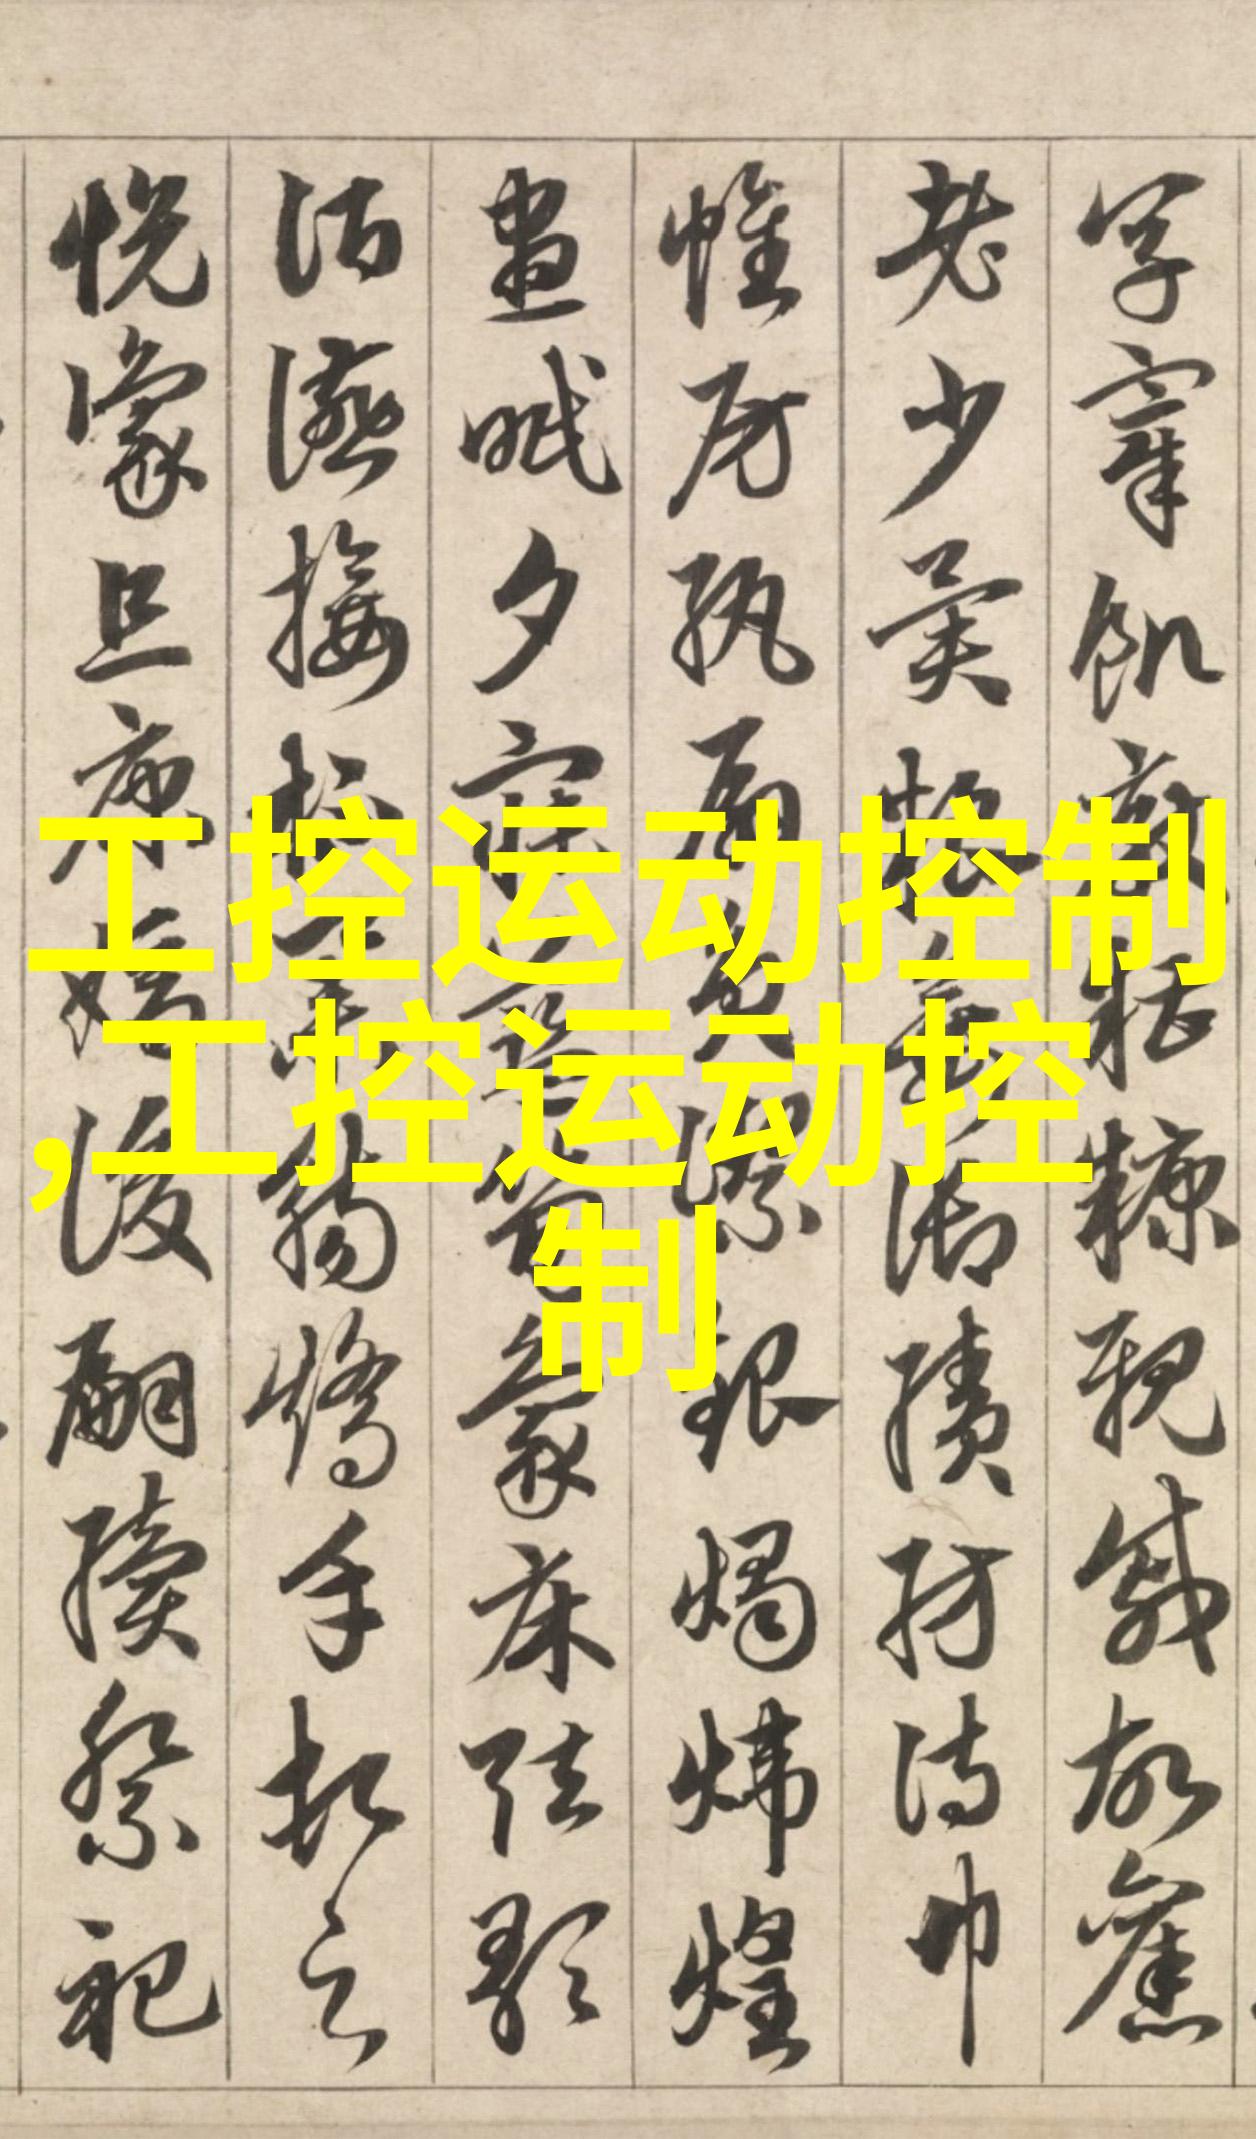 烹宰飢厭糟糠親戚故舊
老少異糧妾御績紡侍巾
帷房紈扇圓潔銀燭煒煌
晝眠夕寐藍筍象床弦歌
酒讌接杯舉觴矯手頓足
悅豫且康嫡後嗣續祭祀
工控运动控制
,工控运动控
制